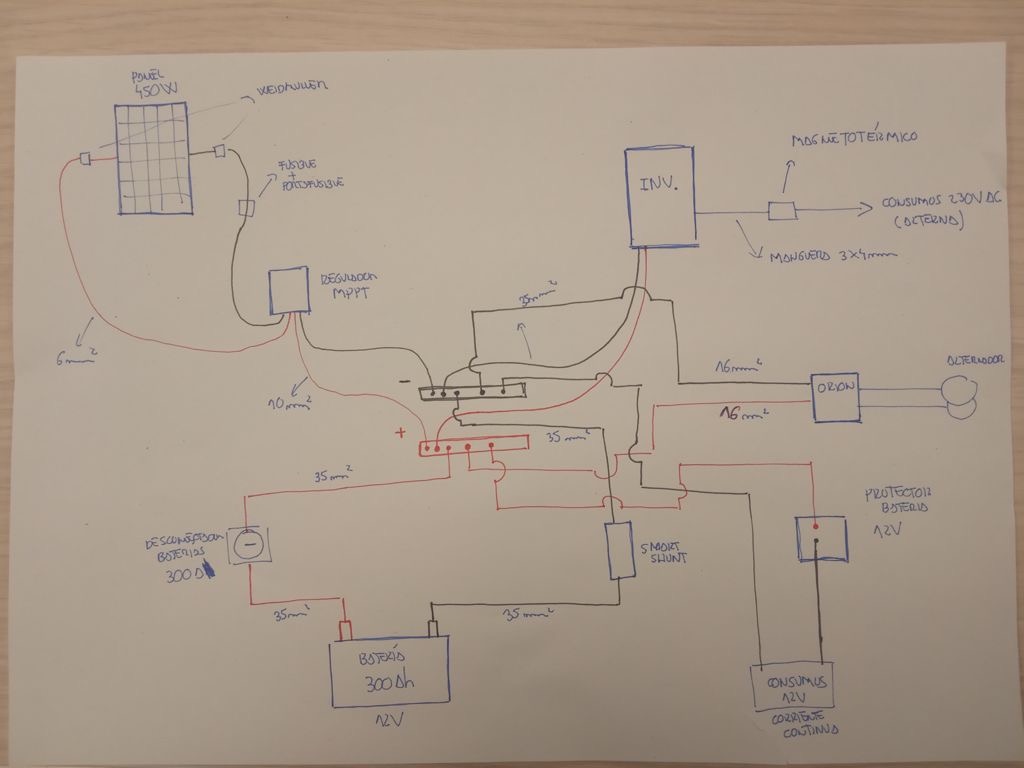 PANEL
450W
WEIDMULLER
FUSIBLE
+
PORTAFUSIBLE
REGULADOR
MPPT
6mm²
10mm²
INV.
MAGNETOTÉRMICO
CONSUMOS 230V AC
(ALTERNA)
MANGUERA 3X4mm
35mm²
-
+
16mm²
16mm²
ORION
ALTERNADOR
35mm²
35mm²
DESCONECTADOR
BATERIAS
300A
35mm²
35mm²
SMART
SHUNT
PROTECTOR
BATERIA
12V
BATERÍA
300Ah
12V
CONSUMOS
12V
CORRIENTE
CONTINUA